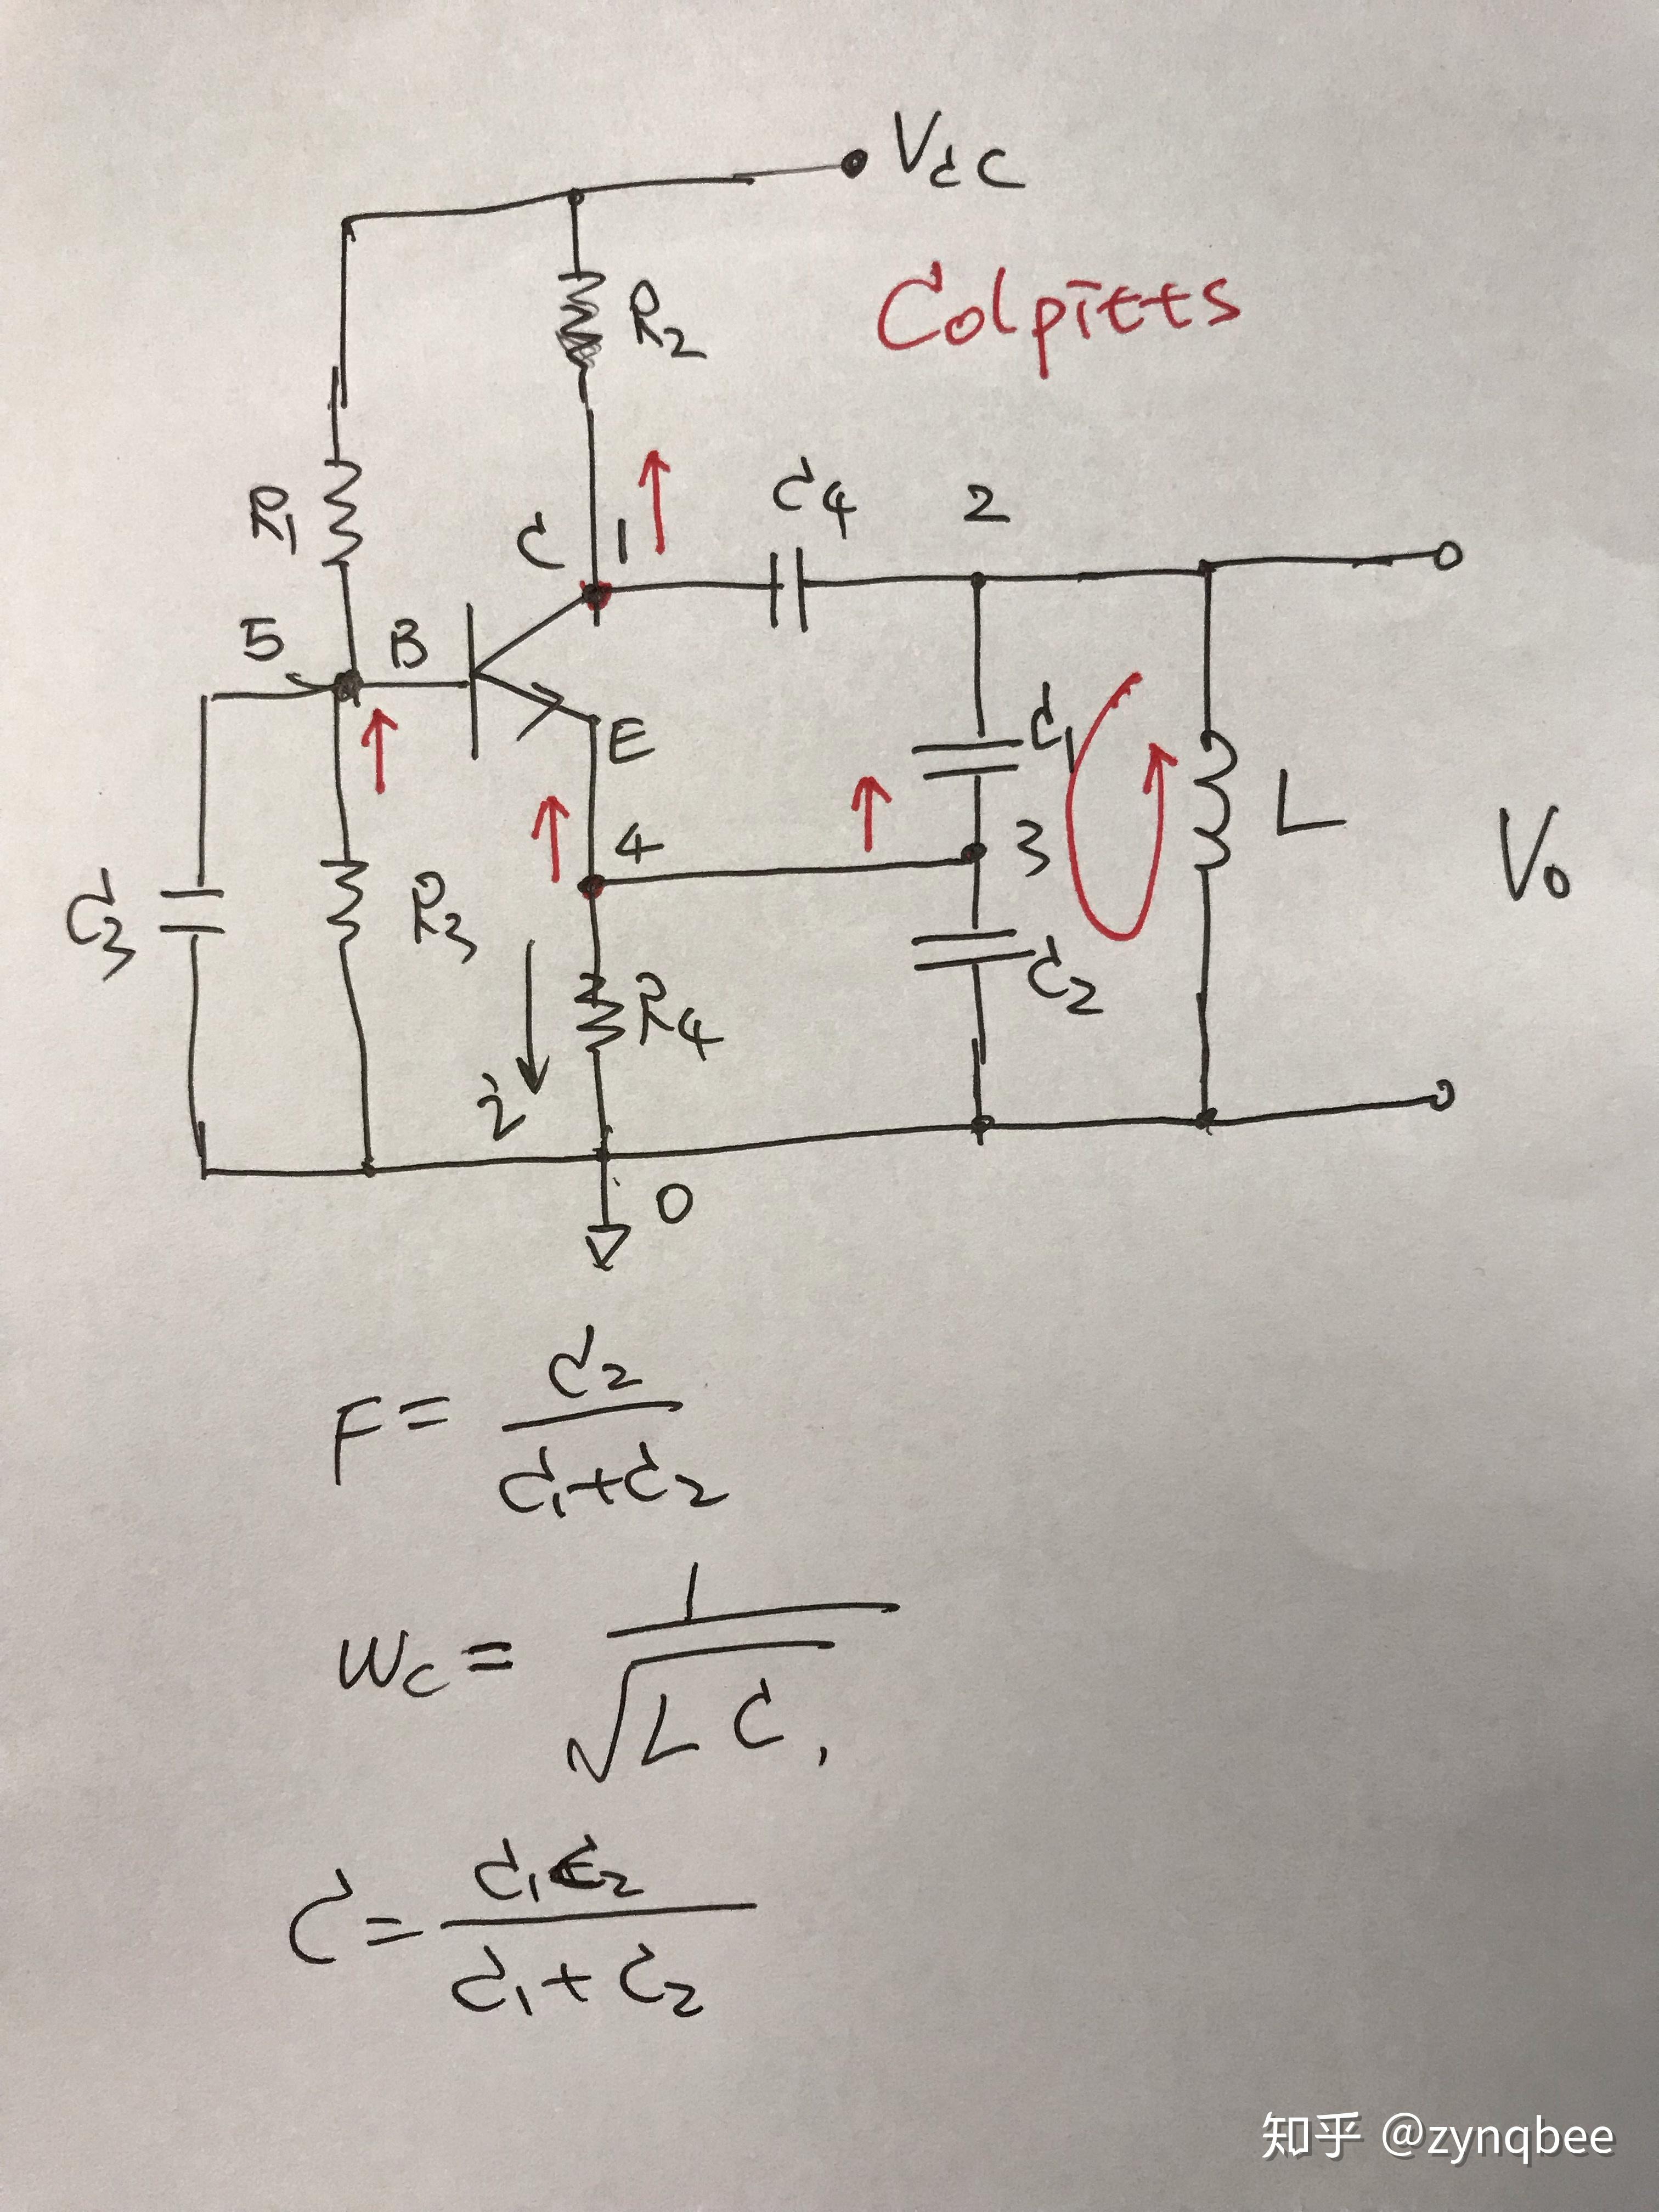 Vcc
Colpitts
R2
R1
C4
2
C
1
5
B
E
C1
L
4
3
Vo
C3
R3
R4
C2
i
0
F = C2 / (C1+C2)
Wc = 1 / √(LC),
C = C1C2 / (C1+C2)
知乎 @zynqbee